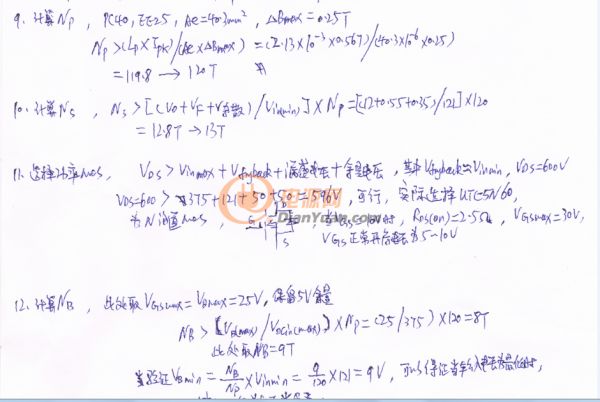 9. 计算Np, PC40, EE25, Ae=40.3mm², ΔBmax=0.25T
Np>(Lp×Ipk)/(Ae×ΔBmax)=(2.13×10⁻³×0.567)/(40.3×10⁻⁶×0.25)
=119.8→120T
10. 计算Ns, Ns>[(Vo+VF+V余数)/Vin(min)]×Np=[(12+0.55+0.35)/121]×120
=12.8T→13T
11. 选择功率MOS, VDS>Vinmax+Vflyback+漏感电压+余量电压, 其中Vflyback≈Vinmin, VDS=600V
VDS=600>375+121+50+50=596V, 可行, 实际选择UTC5N60,
为N沟道MOS, G D S 时, RDS(on)=2.5Ω, VGSmax=30V,
VGS正常开启电压为5~10V
电源网
DianYuan.com
12. 计算NB, 此处取VGSmax=VBmax=25V, 保留5V余量
NB>[VB(max)/VDCin(max)]×Np=(25/375)×120=8T
此处取NB=9T
验证VBmin=NB/Np×Vinmin=9/120×121=9V, 可以保证当输入电压为最低时,